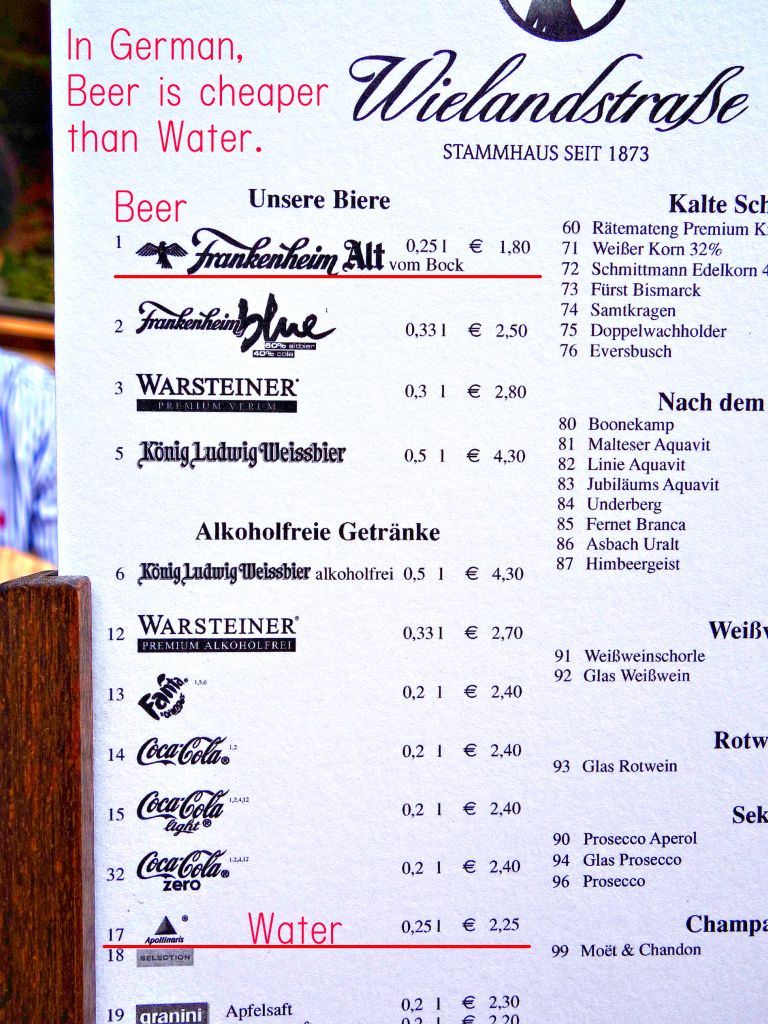 In German,
Beer is cheaper
than Water.
Wielandstraße
STAMMHAUS SEIT 1873
Beer
Unsere Biere
1 Frankenheim Alt 0,25 l € 1,80
vom Bock
2 Frankenheim blue 0,33 l € 2,50
60% altbier
40% cola
3 WARSTEINER 0,3 l € 2,80
PREMIUM VERUM
5 König Ludwig Weissbier 0,5 l € 4,30
Alkoholfreie Getränke
6 König Ludwig Weissbier alkoholfrei 0,5 l € 4,30
12 WARSTEINER 0,33 l € 2,70
PREMIUM ALKOHOLFREI
13 Fanta 1,5,6 0,2 l € 2,40
14 Coca-Cola® 1,2 0,2 l € 2,40
15 Coca-Cola 1,2,4,12 0,2 l € 2,40
light®
32 Coca-Cola® 1,2,4,12 0,2 l € 2,40
zero
17 Apollinaris ® Water 0,25 l € 2,25
18 SELECTION
19 granini Apfelsaft 0,2 l € 2,30
0,2 l € 2,20
Kalte Sch
60 Rätemateng Premium K
71 Weißer Korn 32%
72 Schmittmann Edelkorn 4
73 Fürst Bismarck
74 Samtkragen
75 Doppelwachholder
76 Eversbusch
Nach dem
80 Boonekamp
81 Malteser Aquavit
82 Linie Aquavit
83 Jubiläums Aquavit
84 Underberg
85 Fernet Branca
86 Asbach Uralt
87 Himbeergeist
Weißw
91 Weißweinschorle
92 Glas Weißwein
Rotw
93 Glas Rotwein
Sek
90 Prosecco Aperol
94 Glas Prosecco
96 Prosecco
Champa
99 Moët & Chandon